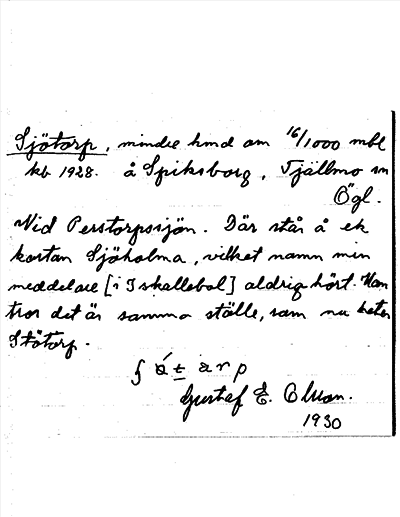 Sjötorp, mindre hmd om 16/1000 mtl
kb 1928. å Spiksborg, Tjällmo sn
Ögl.
Vid Perstorpssjön. Där står å ek
kartan Sjöholma, vilket namn min
meddelare [i Iskallebol] aldrig hört. Han
tror det är samma ställe, som nu heter
Sjötorp.
Gustaf E. Olsson.
1930